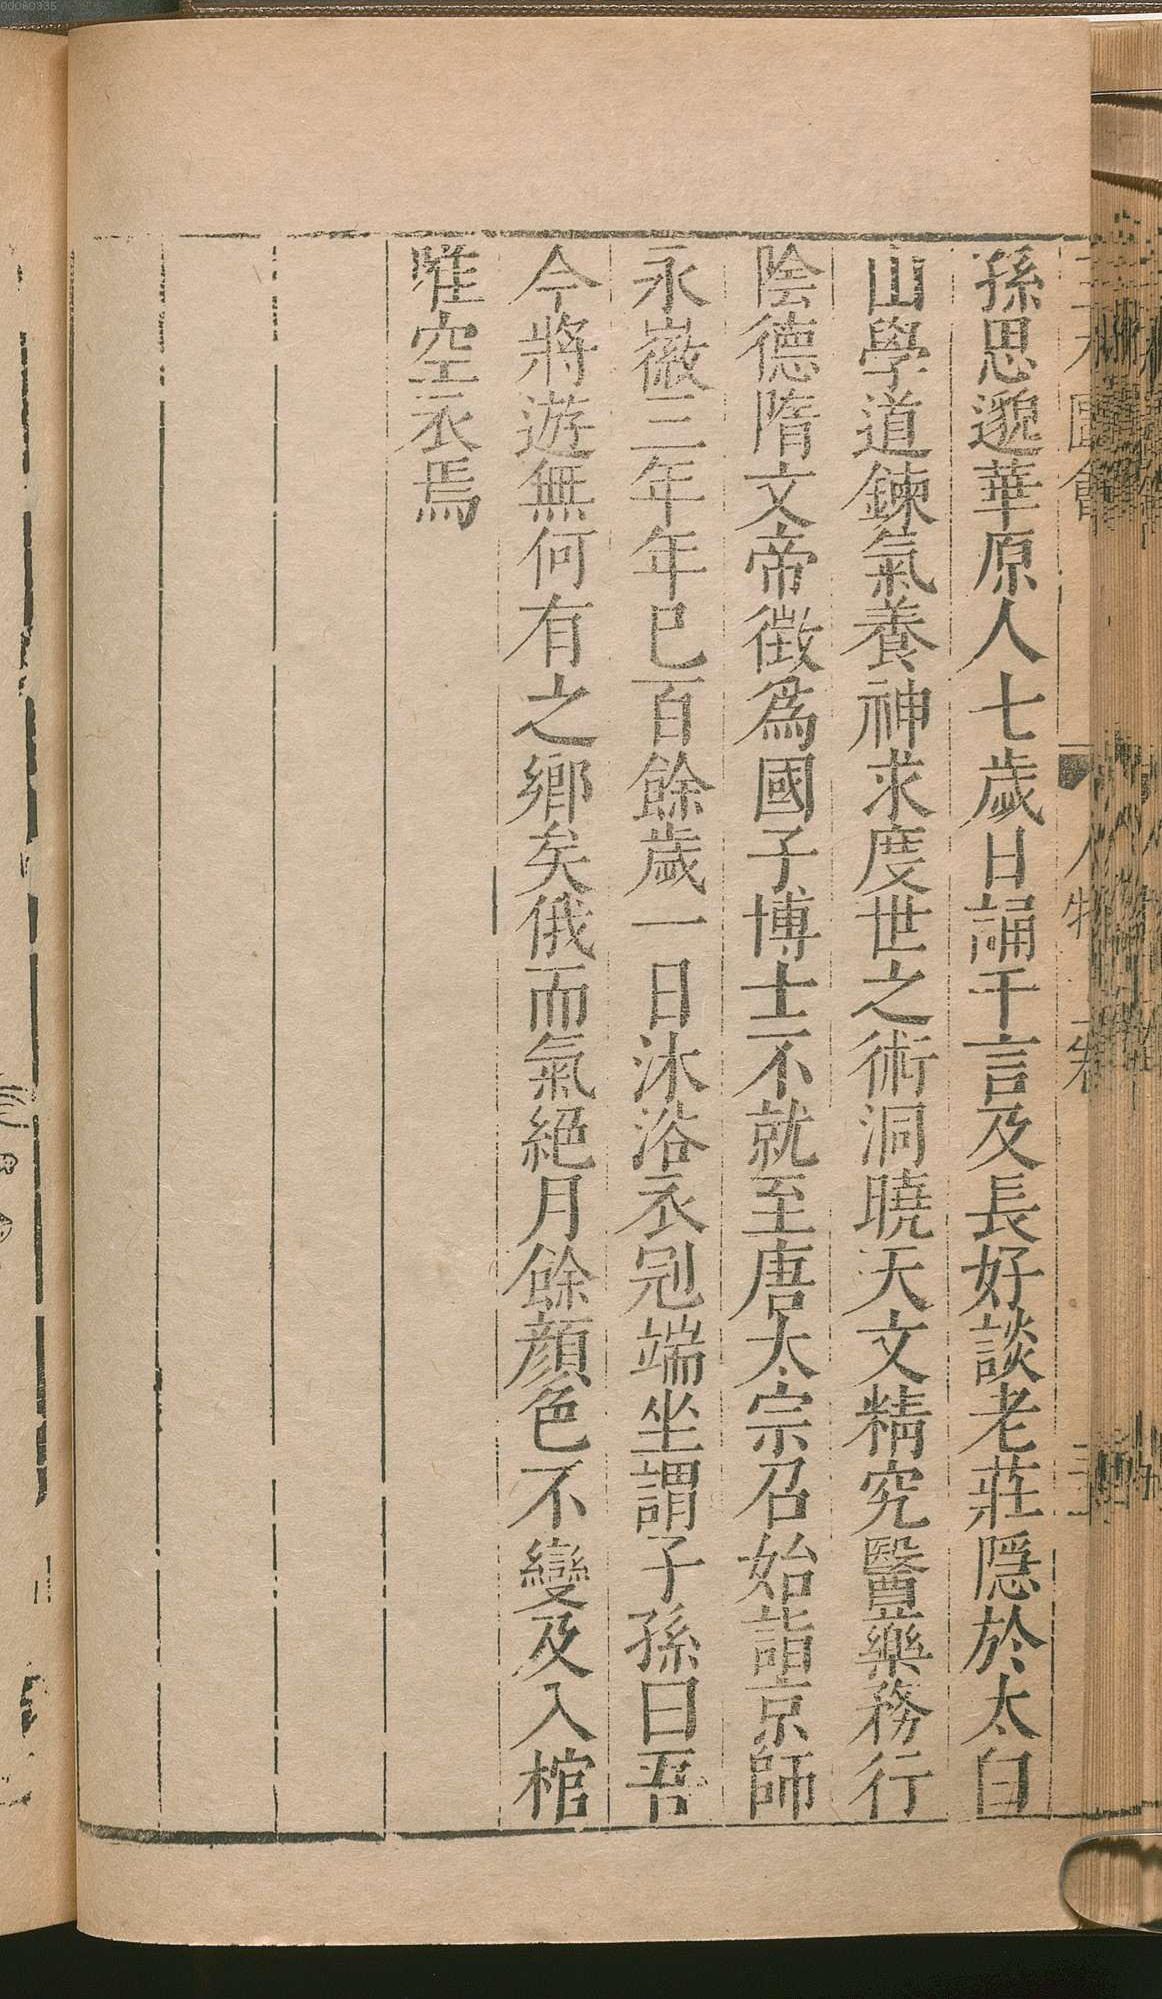 孫思邈華原人七歲日誦千言及長好談老莊隱於太白
山學道鍊氣養神求度世之術洞曉天文精究醫藥務行
陰德隋文帝徵爲國子博士不就至唐太宗召始詣京師
永徽三年年已百餘歲一日沐浴衣冠端坐謂子孫曰吾
今將遊無何有之鄉矣俄而氣絕月餘顏色不變及入棺
唯空衣焉
00080335